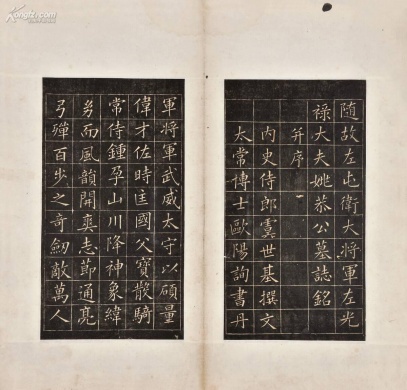 Kongfz.com
随故左屯衛大將軍左光
禄大夫姚恭公墓誌銘
并序
内史侍郎虞世基撰文
太常博士歐陽詢書丹
軍將軍武威太守以碩量
偉才佐時匡國父寶散騎
常侍鍾孕山川降神象緯
㓜而風韻開爽志節通亮
弓殫百步之奇劒敵萬人